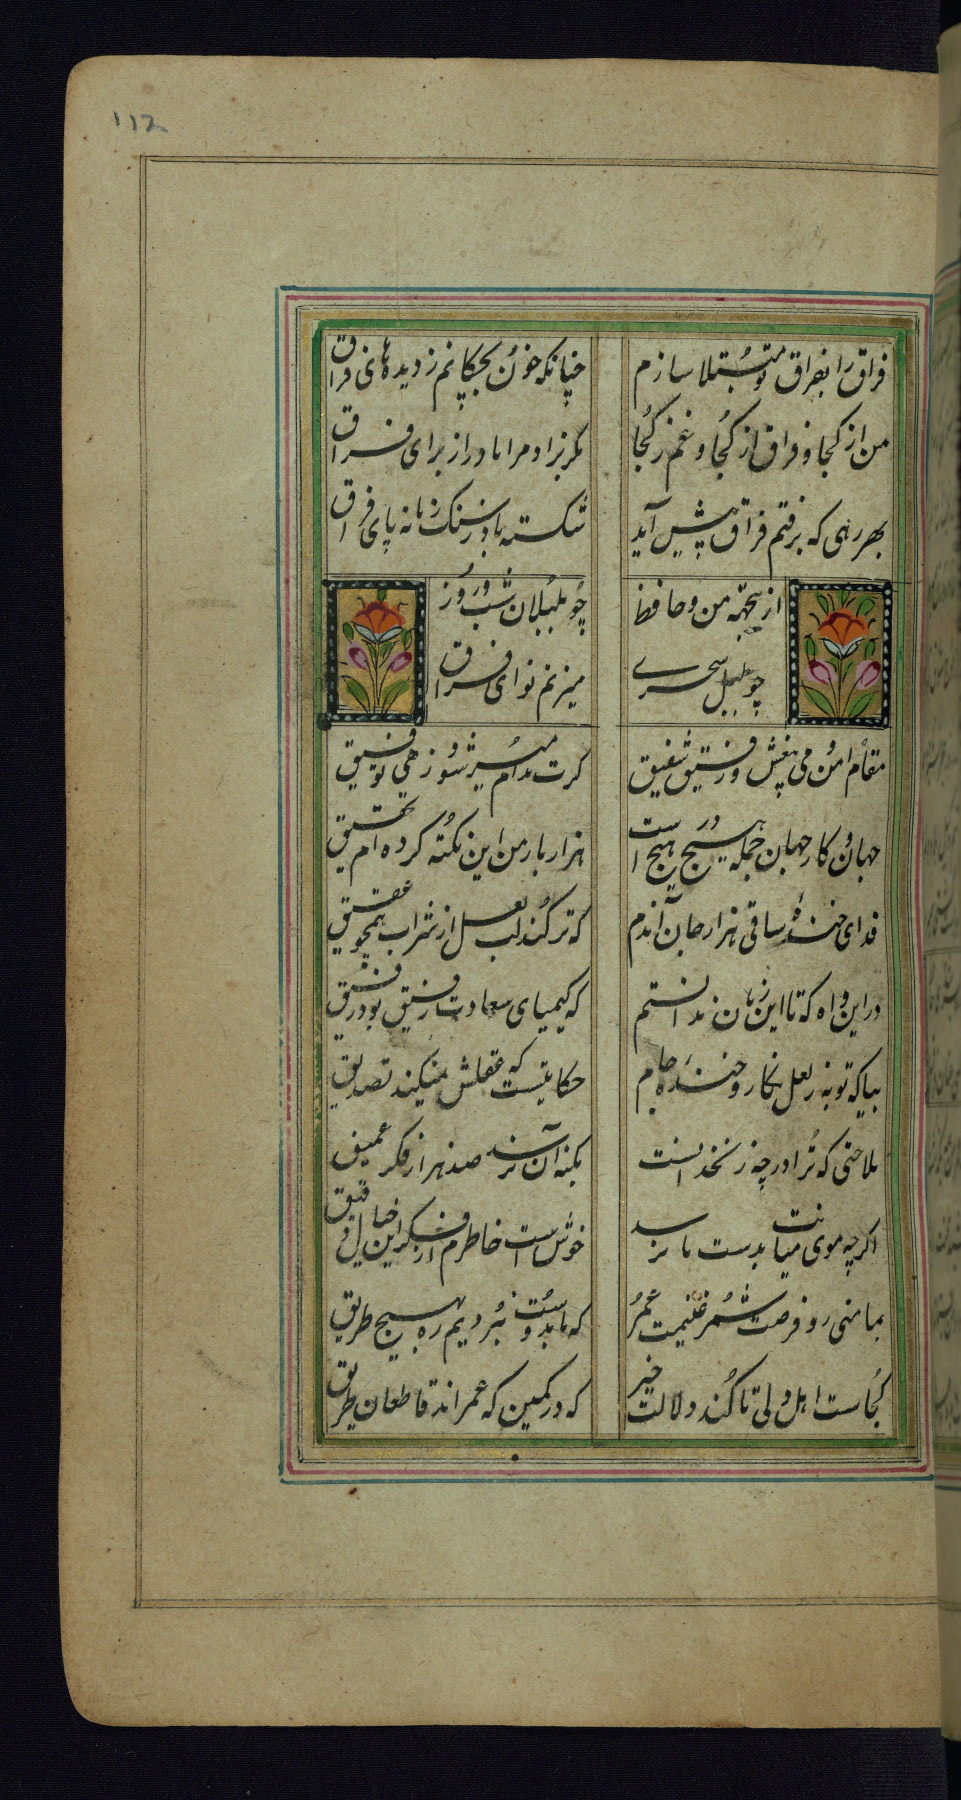 112
فراق را بفراق تو مبتلا سازم
چنانکه خون بچکانم ز دیده‌های فراق
من از کجا و فراق از کجا و غم ز کجا
مگر بزاد مرا مادر از برای فراق
بهر رهی که برفتم فراق پیش آید
شکسته باد ز سنک زمانه پای فراق
از بجهه من و حافظ
چو بلبلان شب و روز
چو بلبل سحری
میزنم نوای فراق
مقام امن و می بیغش و رفیق شفیق
کرت مدام میسر شود زهی توفیق
جهان و کار جهان جمله هیچ در هیچ است
هزار بار من این نکته کرده ام تحقیق
فدای خنده ساقی هزار جان آندم
که تر کند لب لعل از شراب همچو عقیق
دریغ و
در این و اه که تا این زمان ندانستم
که کیمیای سعادت رفیق بود رفیق
بیا که توبه ز لعل نکار و خنده جام
حکایتیست که عقلش نمیکند تصدیق
ملاحتی که ترا در چه زنخدانست
بکنه آن نرسد صد هزار فکر عمیق
اکرچه موی میانت بدست ما نرسد
خوش است خاطرم از فکر این خیال دقیق
بمامنی رو و فرصت شمر غنیمت عمر
که ما بدوست نبردیم ره بهیچ طریق
کجاست اهل دلی تا کند دلالت خیر
که در کمین که عمراند قاطعان طریق